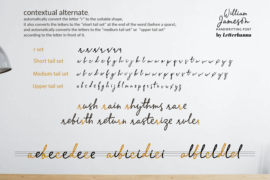 contextual alternate.
automatically convert the letter "r" to the suitable shape.
it also converts the letters to the "short tail set" at the end of the word (before a space),
and automatically convert the letters to the "medium tail set" to "upper tail set"
according to the letter in front of it.
William
Jameson
HANDWRITTEN FONT
by Letterhanna
r set
Short tail set
Medium tail set
Upper tail set
rush rain rhythms rare
rebirth return rasterize ruler
aebecedeee aibicidiei alblcldlel